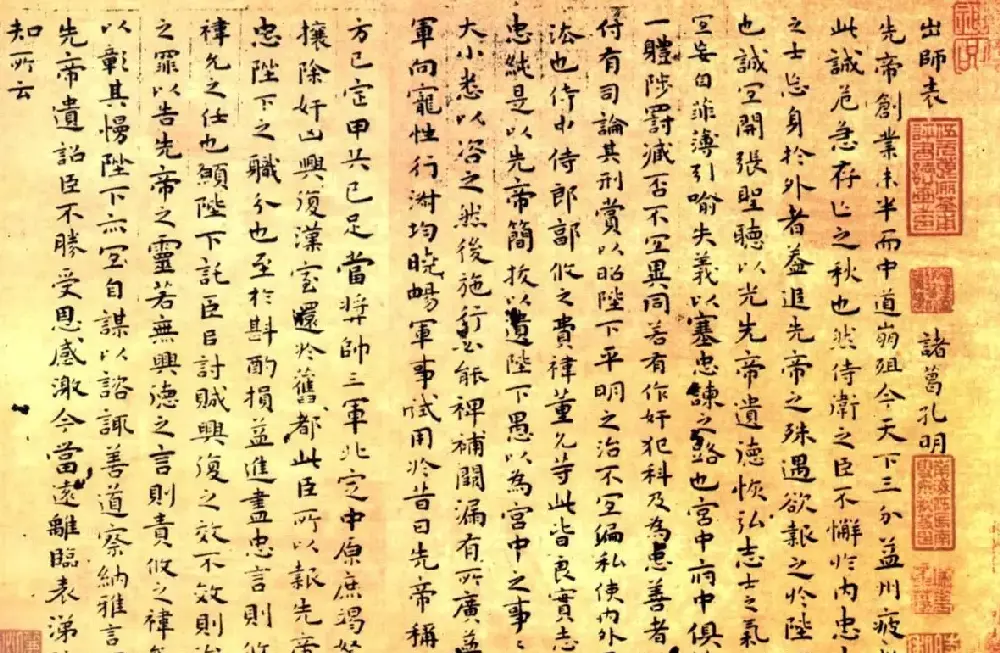 出師表 諸葛孔明
先帝創業未半而中道崩殂今天下三分益州疲
此誠危急存亡之秋也然侍衛之臣不懈於内忠
之士忘身於外者葢追先帝之殊遇欲報之於陛
也誠宜開張聖聽以光先帝遺德恢弘志士之氣
宜妄自菲薄引喻失義以塞忠諫之路也宮中府中俱
一體陟罰臧否不宜異同若有作奸犯科及為忠善者
付有司論其刑賞以昭陛下平明之治不宜偏私使内外
法也侍中侍郎郭攸之費禕董允等此皆良實志
忠純是以先帝簡拔以遺陛下愚以為宮中之事〻
大小悉以咨之然後施行必能裨補闕漏有所廣益
軍向寵性行淑均曉暢軍事試用於昔日先帝稱
方已定甲兵已足當獎帥三軍北定中原庶竭駑
攘除奸凶興復漢室還於舊都此臣所以報先帝
忠陛下之職分也至於斟酌損益進盡忠言則攸
禕允之任也願陛下託臣以討賊興復之效不效則
之罪以告先帝之靈若無興德之言則責攸之禕
以彰其慢陛下亦宜自謀以諮諏善道察納雅言
先帝遺詔臣不勝受恩感激今當遠離臨表涕
知所云